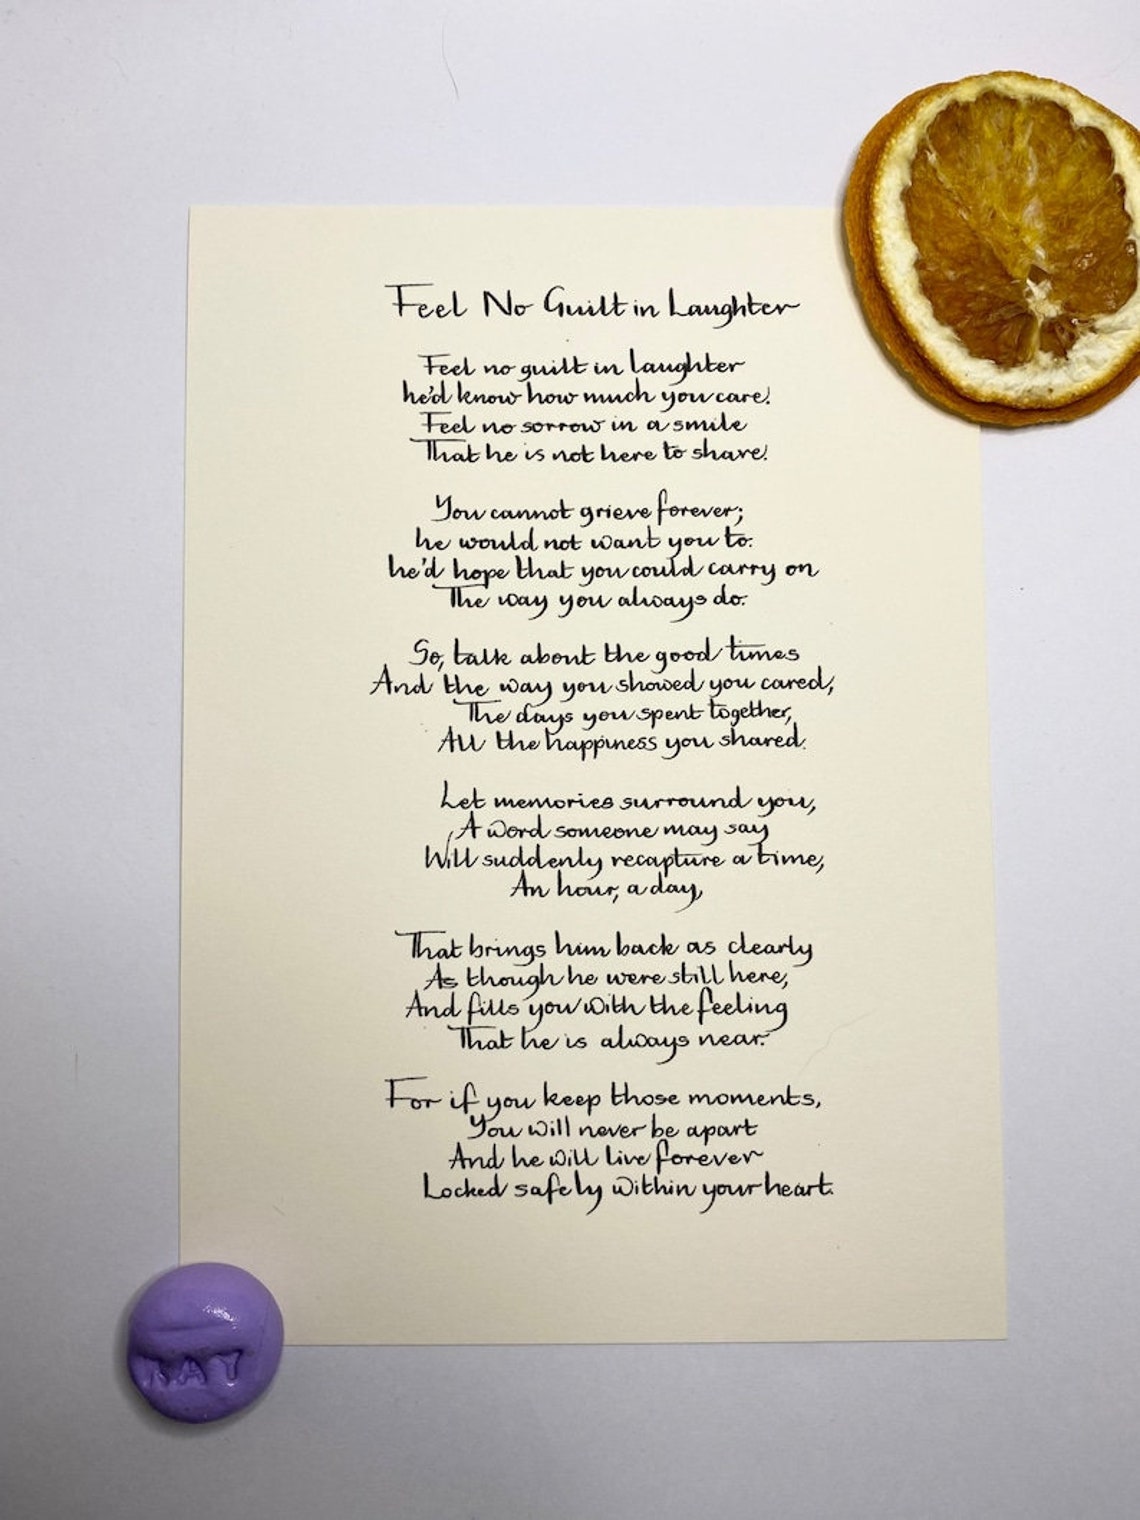 Feel No Guilt in Laughter
Feel no guilt in laughter
he'd know how much you care.
Feel no sorrow in a smile
That he is not here to share.
You cannot grieve forever;
he would not want you to.
he'd hope that you could carry on
The way you always do.
So, talk about the good times
And the way you showed you cared,
The days you spent together,
All the happiness you shared.
Let memories surround you,
A word someone may say
Will suddenly recapture a time,
An hour, a day,
That brings him back as clearly
As though he were still here,
And fills you with the feeling
That he is always near.
For if you keep those moments,
You will never be apart
And he will live forever
Locked safely within your heart.